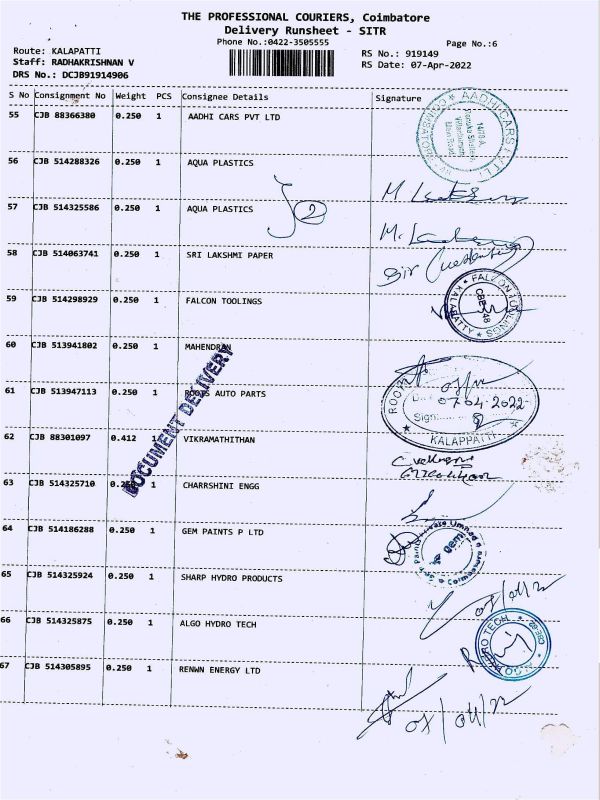 THE PROFESSIONAL COURIERS, Coimbatore
Delivery Runsheet - SITR
Phone No.:0422-3505555
Page No.:6
Route: KALAPATTI
Staff: RADHAKRISHNAN V
DRS No.: DCJB91914906
RS No.: 919149
RS Date: 07-Apr-2022
S No Consignment No Weight PCS Consignee Details Signature
55 CJB 88366380 0.250 1 AADHI CARS PVT LTD
AADHI CARS
COIMBATORE
56 CJB 514288326 0.250 1 AQUA PLASTICS
57 CJB 514325586 0.250 1 AQUA PLASTICS
2
58 CJB 514063741 0.250 1 SRI LAKSHMI PAPER
59 CJB 514298929 0.250 1 FALCON TOOLINGS
FALCON TOOLINGS
KALAPATTY
60 CJB 513941802 0.250 1 MAHENDRAN
61 CJB 513947113 0.250 1 ROOTS AUTO PARTS
07-04-2022
Sign
KALAPPATTI
DOCUMENT DELIVERY
62 CJB 88301097 0.412 1 VIKRAMATHITHAN
63 CJB 514325710 0.250 1 CHARRSHINI ENGG
64 CJB 514186288 0.250 1 GEM PAINTS P LTD
gem
Coimbatore
65 CJB 514325924 0.250 1 SHARP HYDRO PRODUCTS
66 CJB 514325875 0.250 1 ALGO HYDRO TECH
67 CJB 514305895 0.250 1 RENWN ENERGY LTD